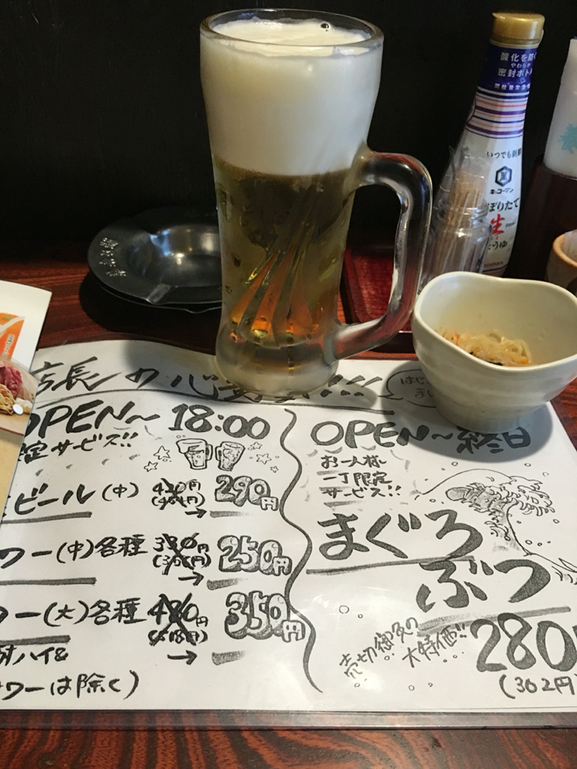 酸化を防ぐ
密封ボトル
いつでも新鮮
キッコーマン
しぼりたて
生
しょうゆ
店長の心
!!!
OPEN〜 18:00
定サービス!!
ビール(中) 430円 → 290円
ワー(中)各種 380円 → 250円
ワー(大)各種 480円 → 350円
ハイ&
ワーは除く)
OPEN〜終日
お一人様
一丁限定
サービス!!
まぐろ
ぶつ
売切御免の
大特価!!
280
(302円)